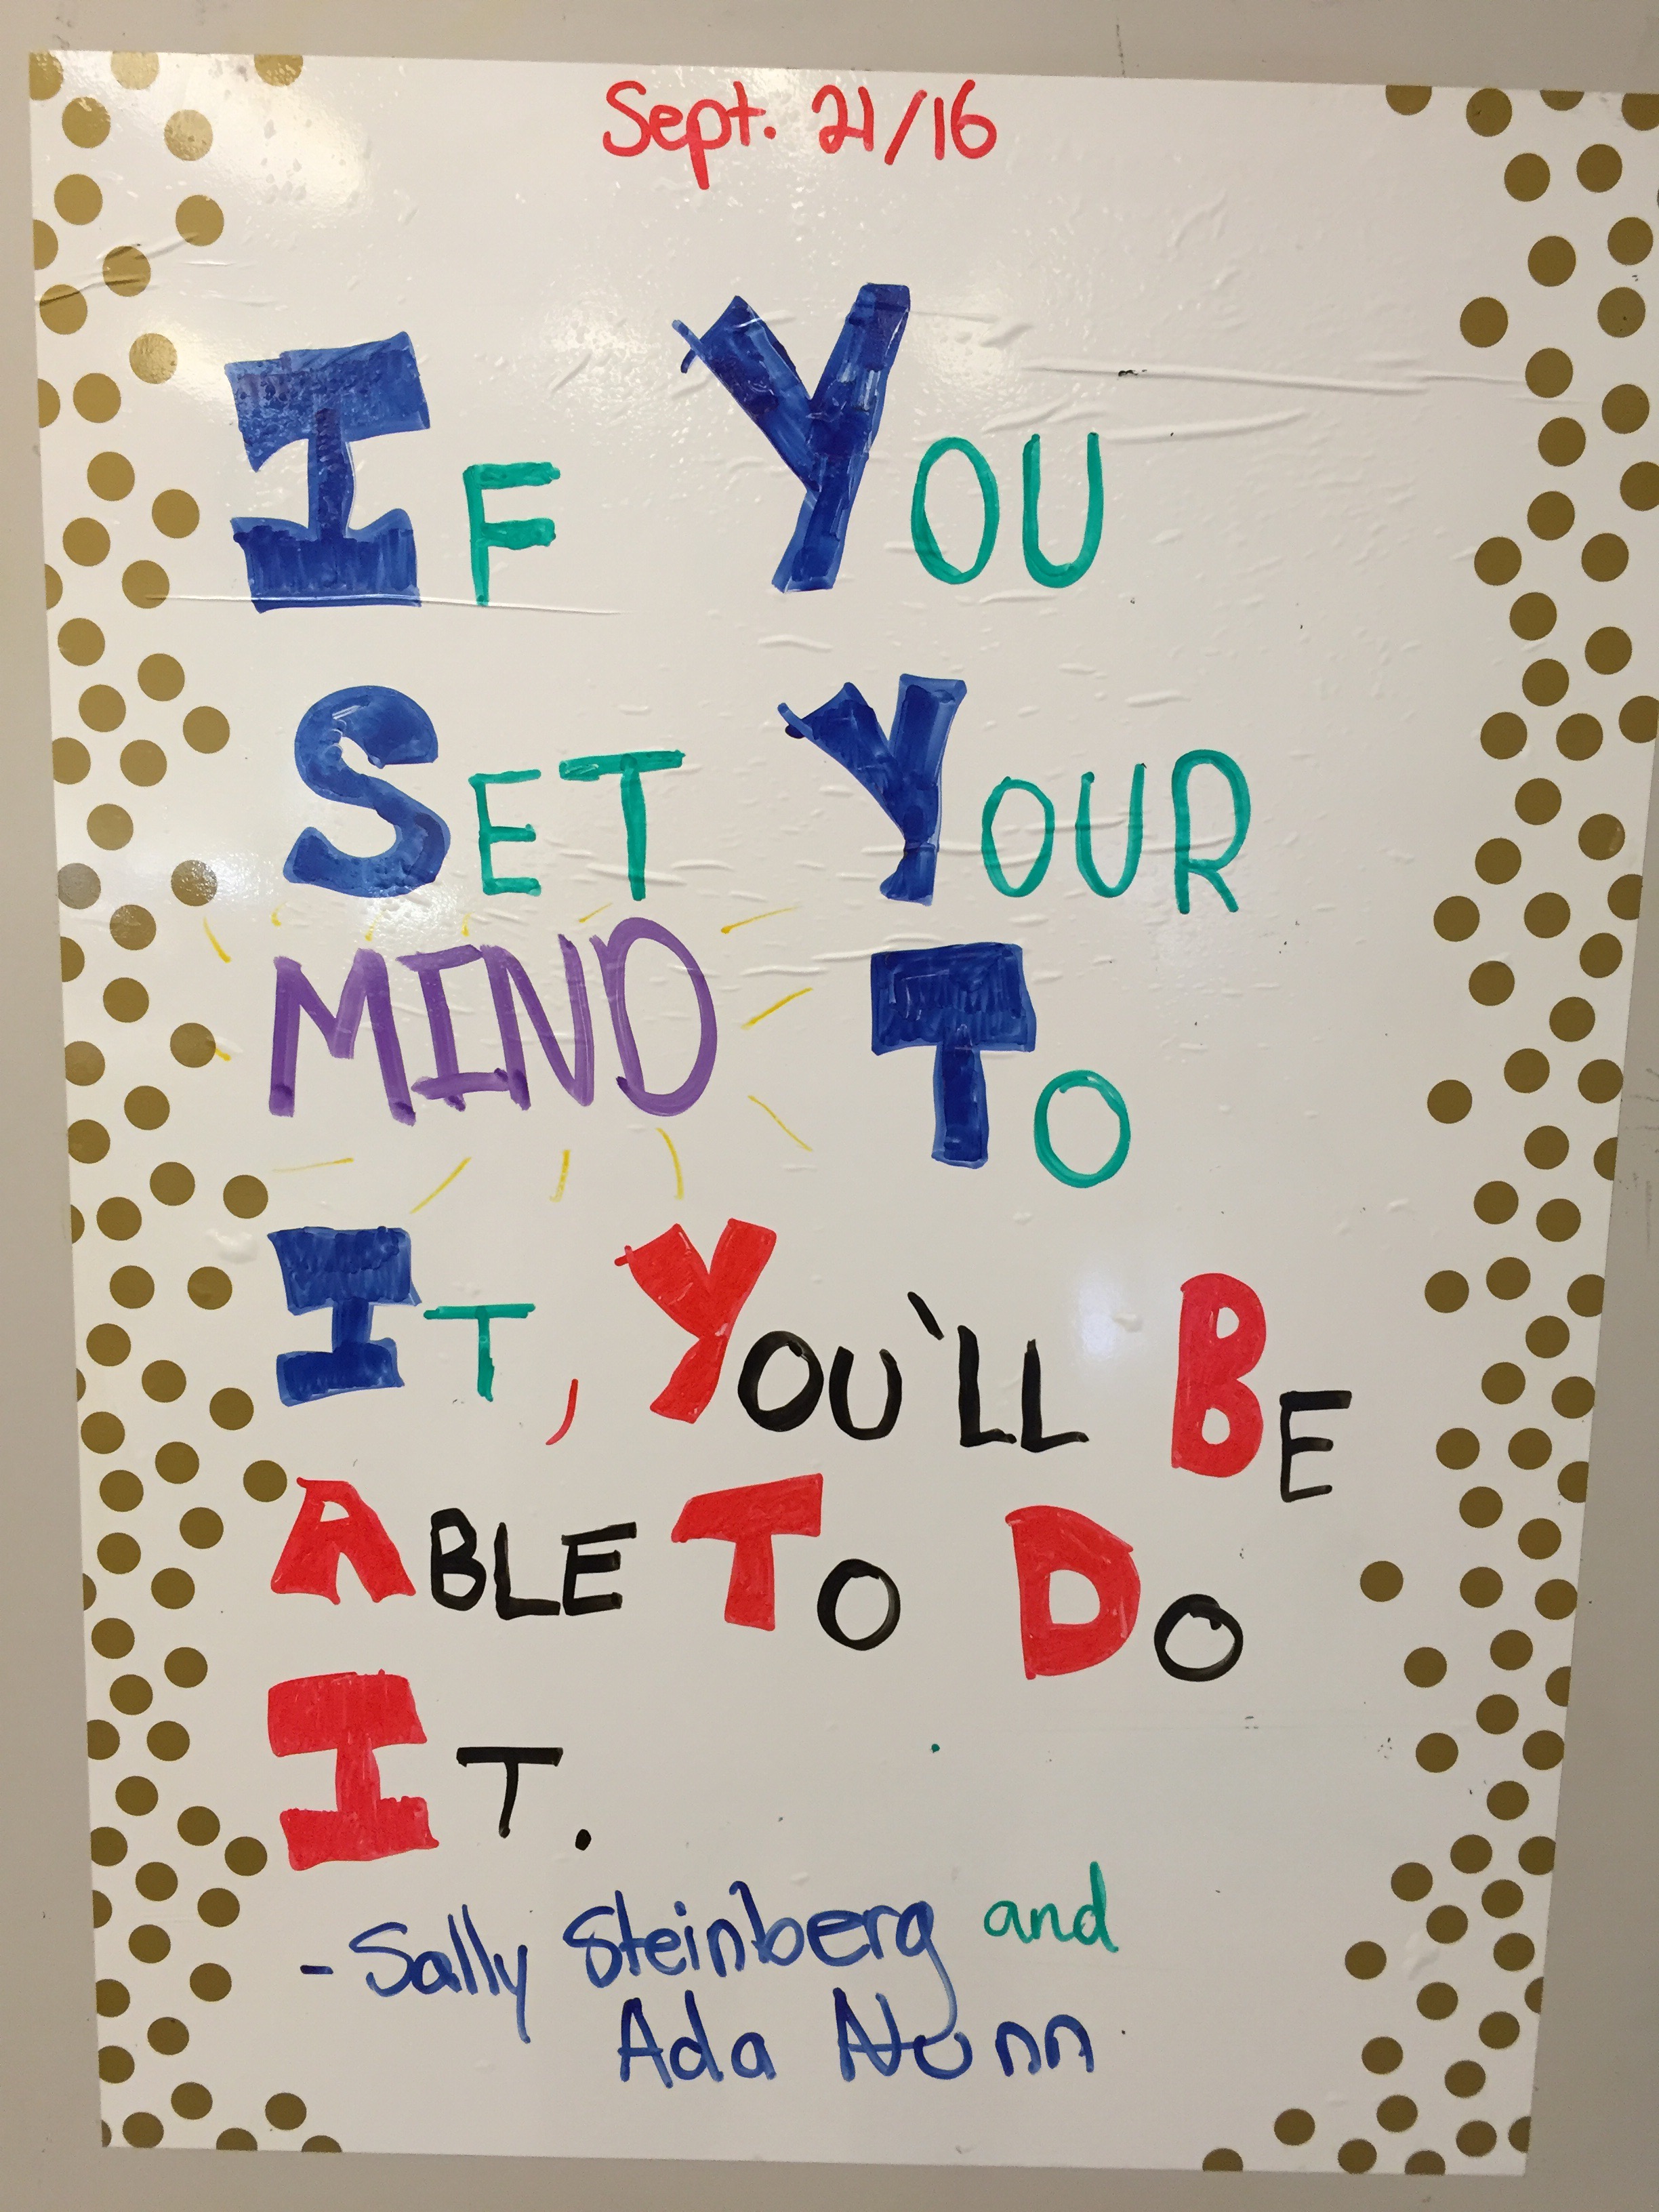 Sept. 21/16
IF YOU
SET YOUR
MIND TO
IT, YOU'LL BE
ABLE TO DO
IT.
- Sally Steinberg and
Ada Nunn